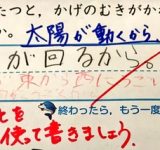 たつと、かげのむきがかわ
か。太陽が動くから、
が回るから。
東から西に
とを
使って書きましょう。
終わったら、もう一度